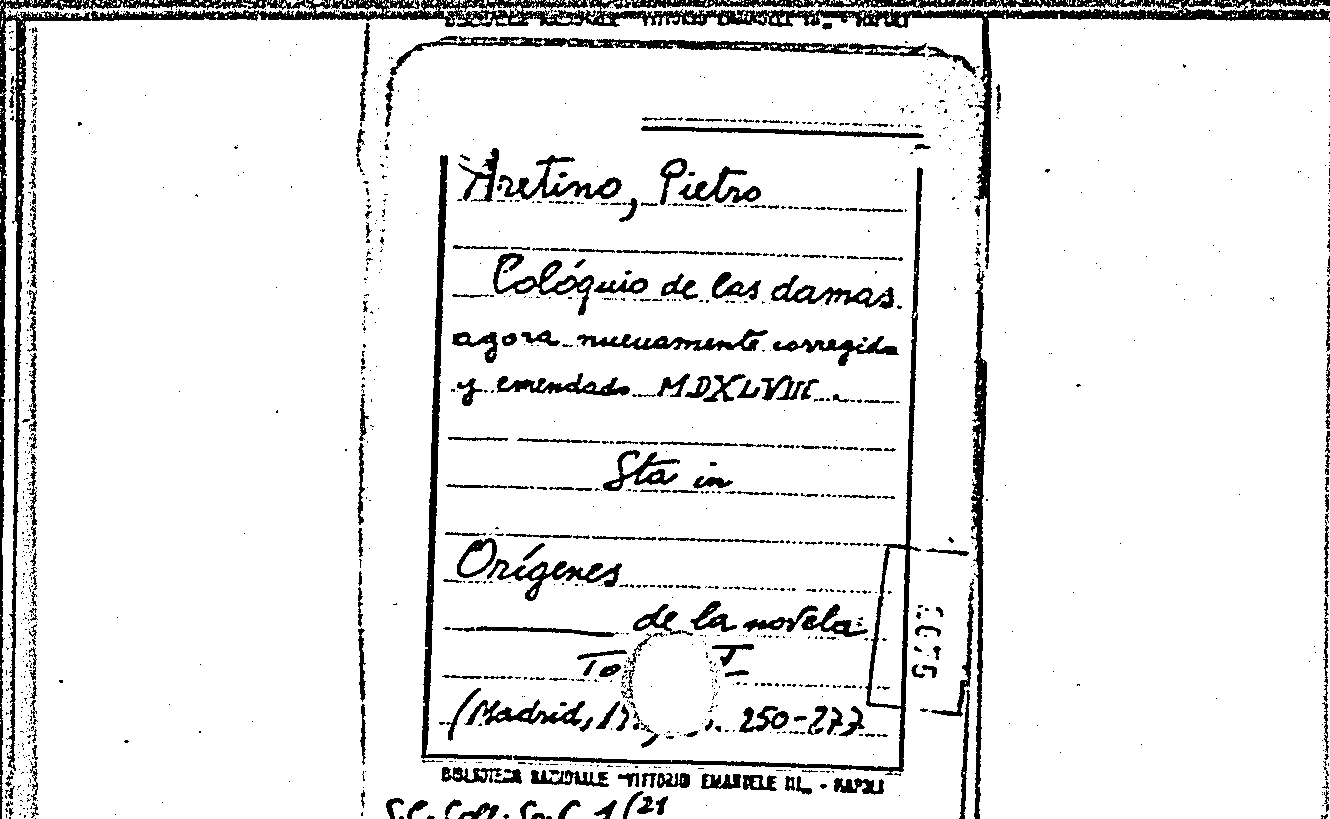 BIBLIOTECA NAZIONALE "VITTORIO EMANUELE III" - NAPOLI
Aretino, Pietro
Colóquio de las damas.
agora nueuamente corregido
y emendado MDXLVIII.
Sta in
Orígenes
de la novela
To I
(Madrid, 250-277
BIBLIOTECA NAZIONALE "VITTORIO EMANUELE III" - NAPOLI